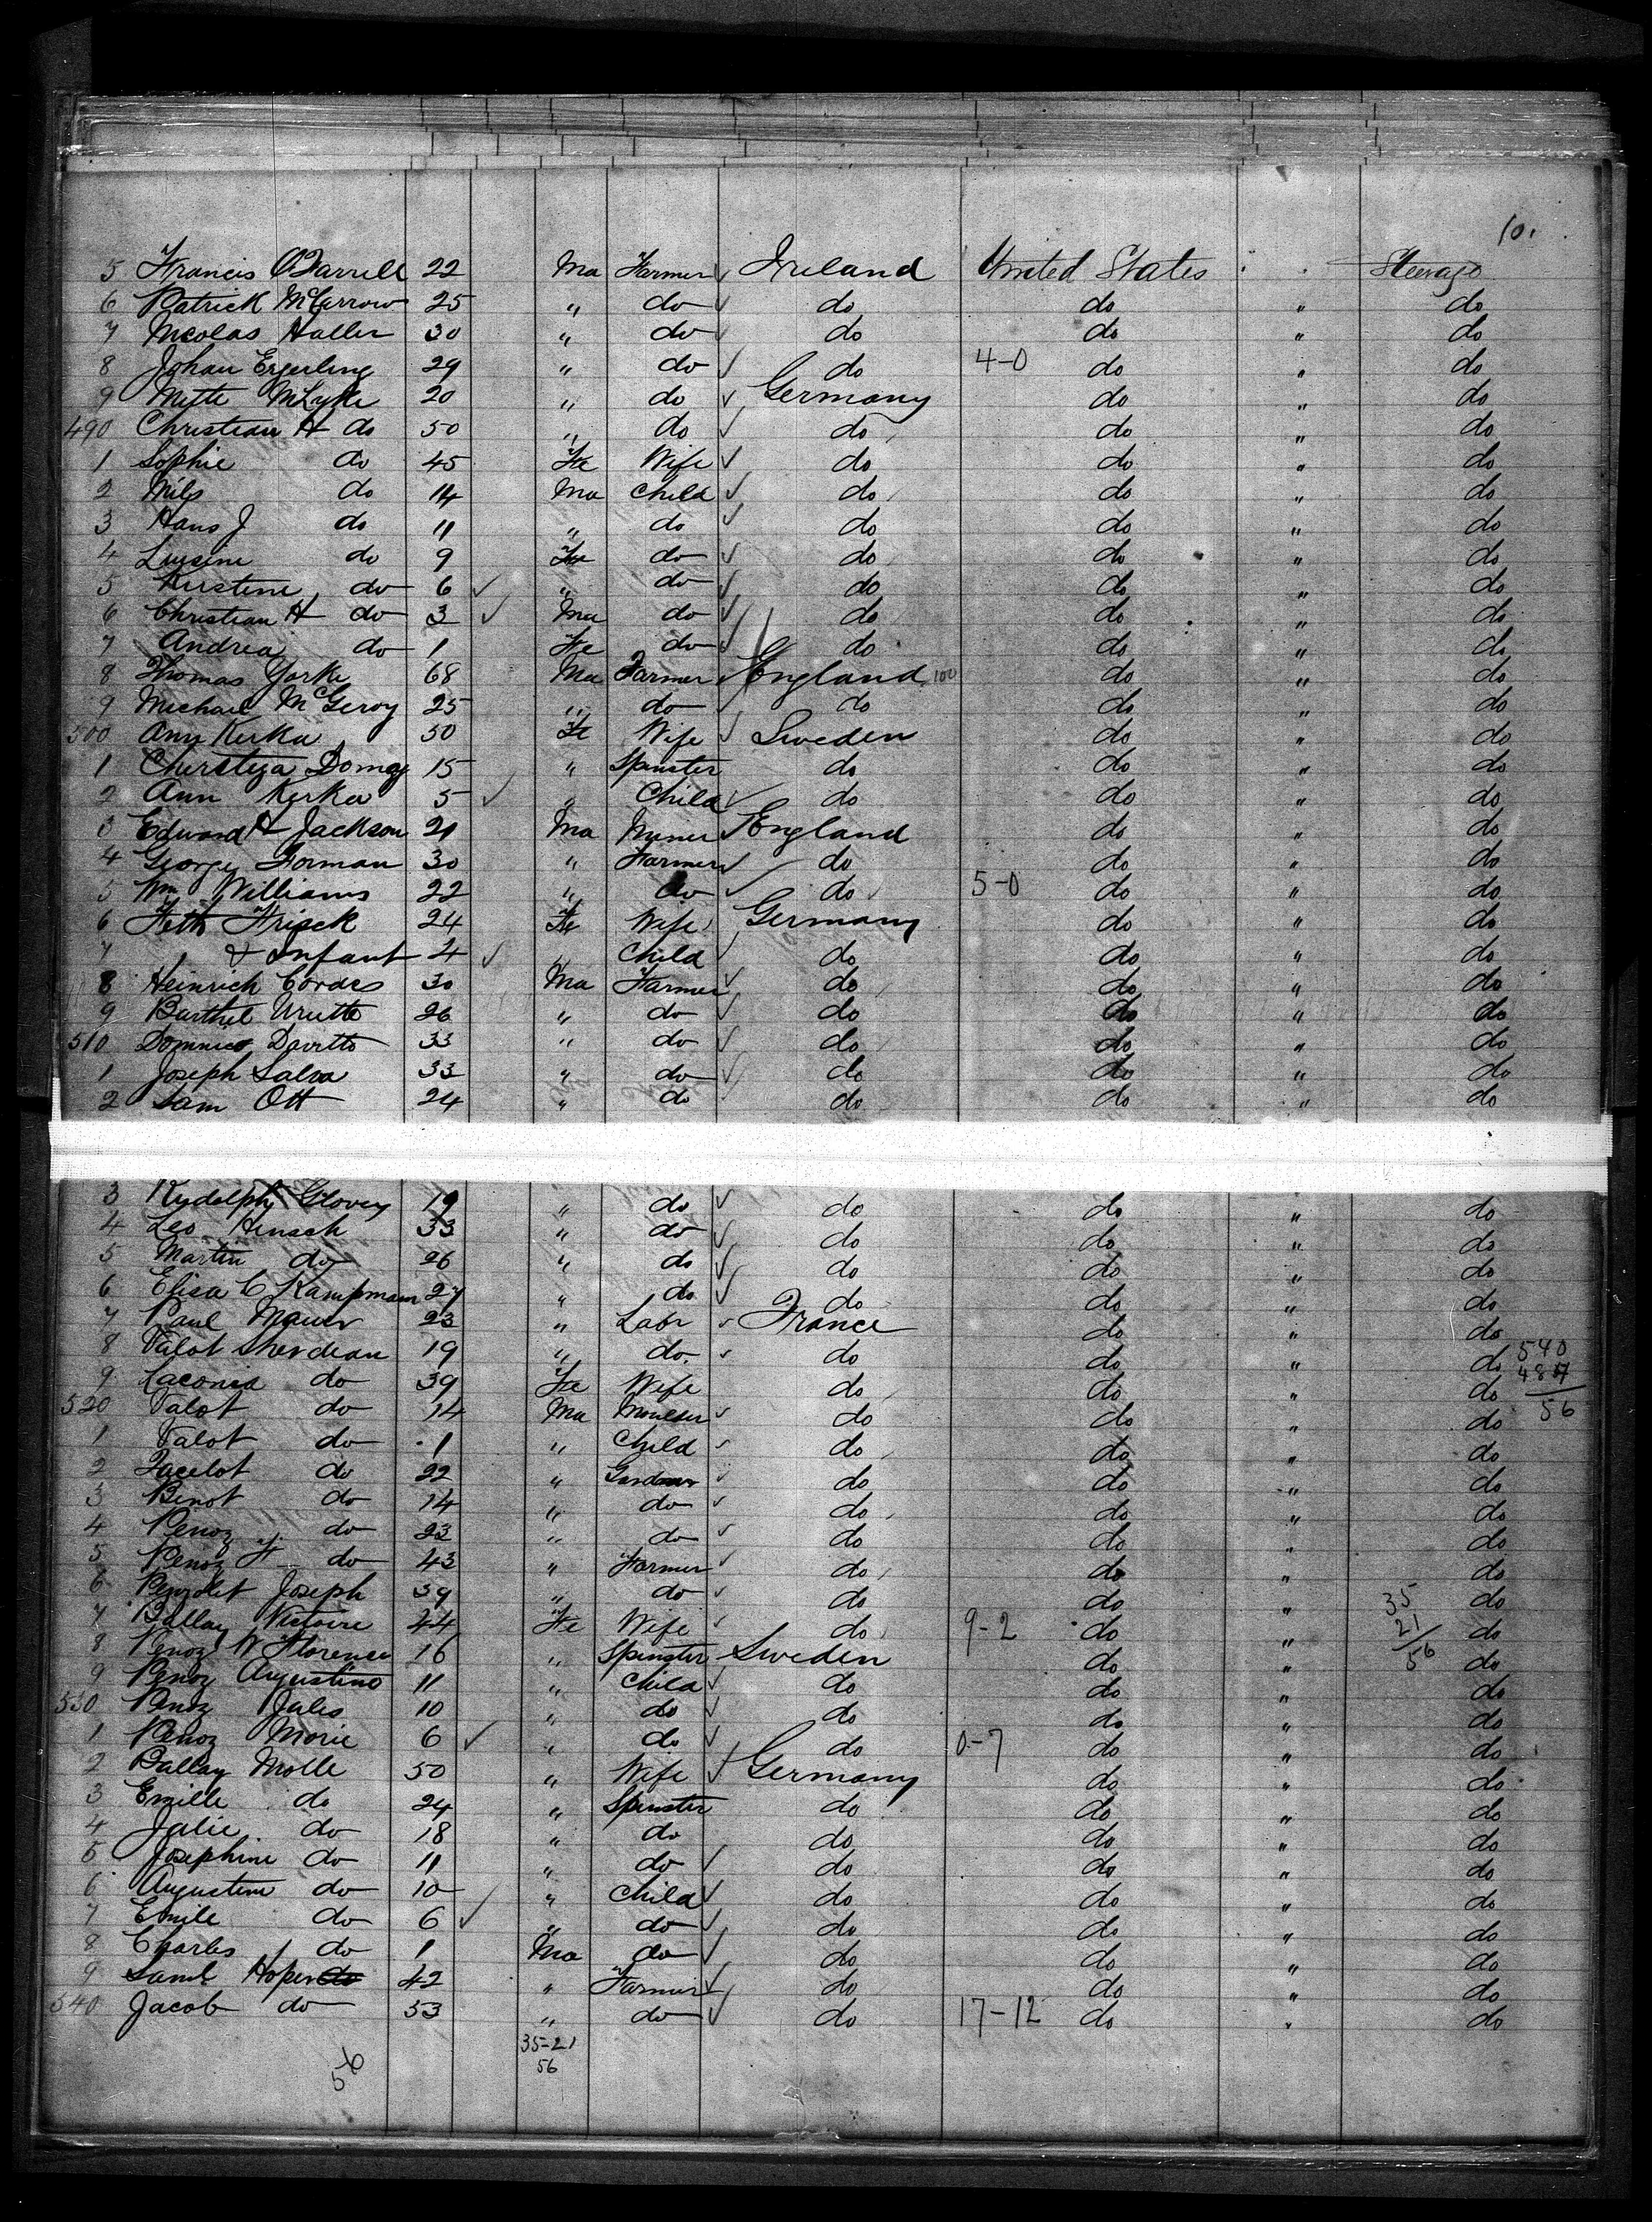 10.
5 Francis O'Farrell 22 Ma Farmer Ireland United States " Steerage
6 Patrick McCarrow 25 " do do do " do
7 Nicolas Haller 30 " do do do " do
8 Johan Egerling 29 " do do 4-0 do " do
9 Mette McLyke 20 " do Germany do " do
490 Christian H do 50 " do do do " do
1 Sophie do 45 Fe Wife do do " do
2 Nils do 14 Ma Child do do " do
3 Hans J do 11 " do do do " do
4 Luisine do 9 Fe do do do " do
5 Kirstine do 6 " do do do " do
6 Christian H do 3 Ma do do do " do
7 Andrea do 1 Fe do do do " do
8 Thomas Yorke 68 Ma Farmer England 100 do " do
9 Michael McGeroy 25 " do do do " do
500 Ann Kerka 50 Fe Wife Sweden do " do
1 Cherstiza Domay 15 " Spinster do do " do
2 Ann Kerka 5 " Child do do " do
3 Edward H Jackson 21 Ma Miner England do " do
4 George Forman 30 " Farmer do do " do
5 Wm Williams 22 " do do 5-0 do " do
6 Feth Frisck 24 Fe Wife Germany do " do
7 & Infant 4 " Child do do " do
8 Heinrich Cordes 30 Ma Farmer do do " do
9 Barthil Urutto 26 " do do do " do
510 Dominico Davitto 33 " do do do " do
1 Joseph Salva 33 " do do do " do
2 Sam Ott 24 " do do do " do
3 Rydolph Glovey 19 " do do do " do
4 Leo Hensch 33 " do do do " do
5 Martin do 26 " do do do " do
6 Elisa C Kampmann 27 " do do do " do
7 Paul Maurer 23 " Labr France do " do
8 Valot Sherdean 19 " do do do " do 540
9 Laconia do 39 Fe Wife do do " do 484
520 Valot do 14 Ma Moulder do do " do 56
1 Valot do 1 " Child do do " do
2 Facelot do 22 " Gardener do do " do
3 Benot do 14 " do do do " do
4 Penoz do 23 " do do do " do
5 Penoz F do 43 " Farmer do do " do
6 Penolet Joseph 39 " do do do " 35 do
7 Ballay Victoire 44 Fe Wife do 9-2 do " 21 do
8 Penoz W Florence 16 " Spinster Sweden do " 56 do
9 Penoz Augustine 11 " Child do do " do
530 Penoz Jules 10 " do do do " do
1 Penoz Marie 6 " do do 0-7 do " do
2 Ballay Molle 50 " Wife Germany do " do
3 Emille do 24 " Spinster do do " do
4 Julie do 18 " do do do " do
5 Josephine do 11 " do do do " do
6 Augustine do 10 " Child do do " do
7 Emile do 6 " do do do " do
8 Charles do 1 Ma do do do " do
9 Saml Hoper do 42 " Farmer do do " do
540 Jacob do 53 " do do 17-12 do " do
35-21
56 56